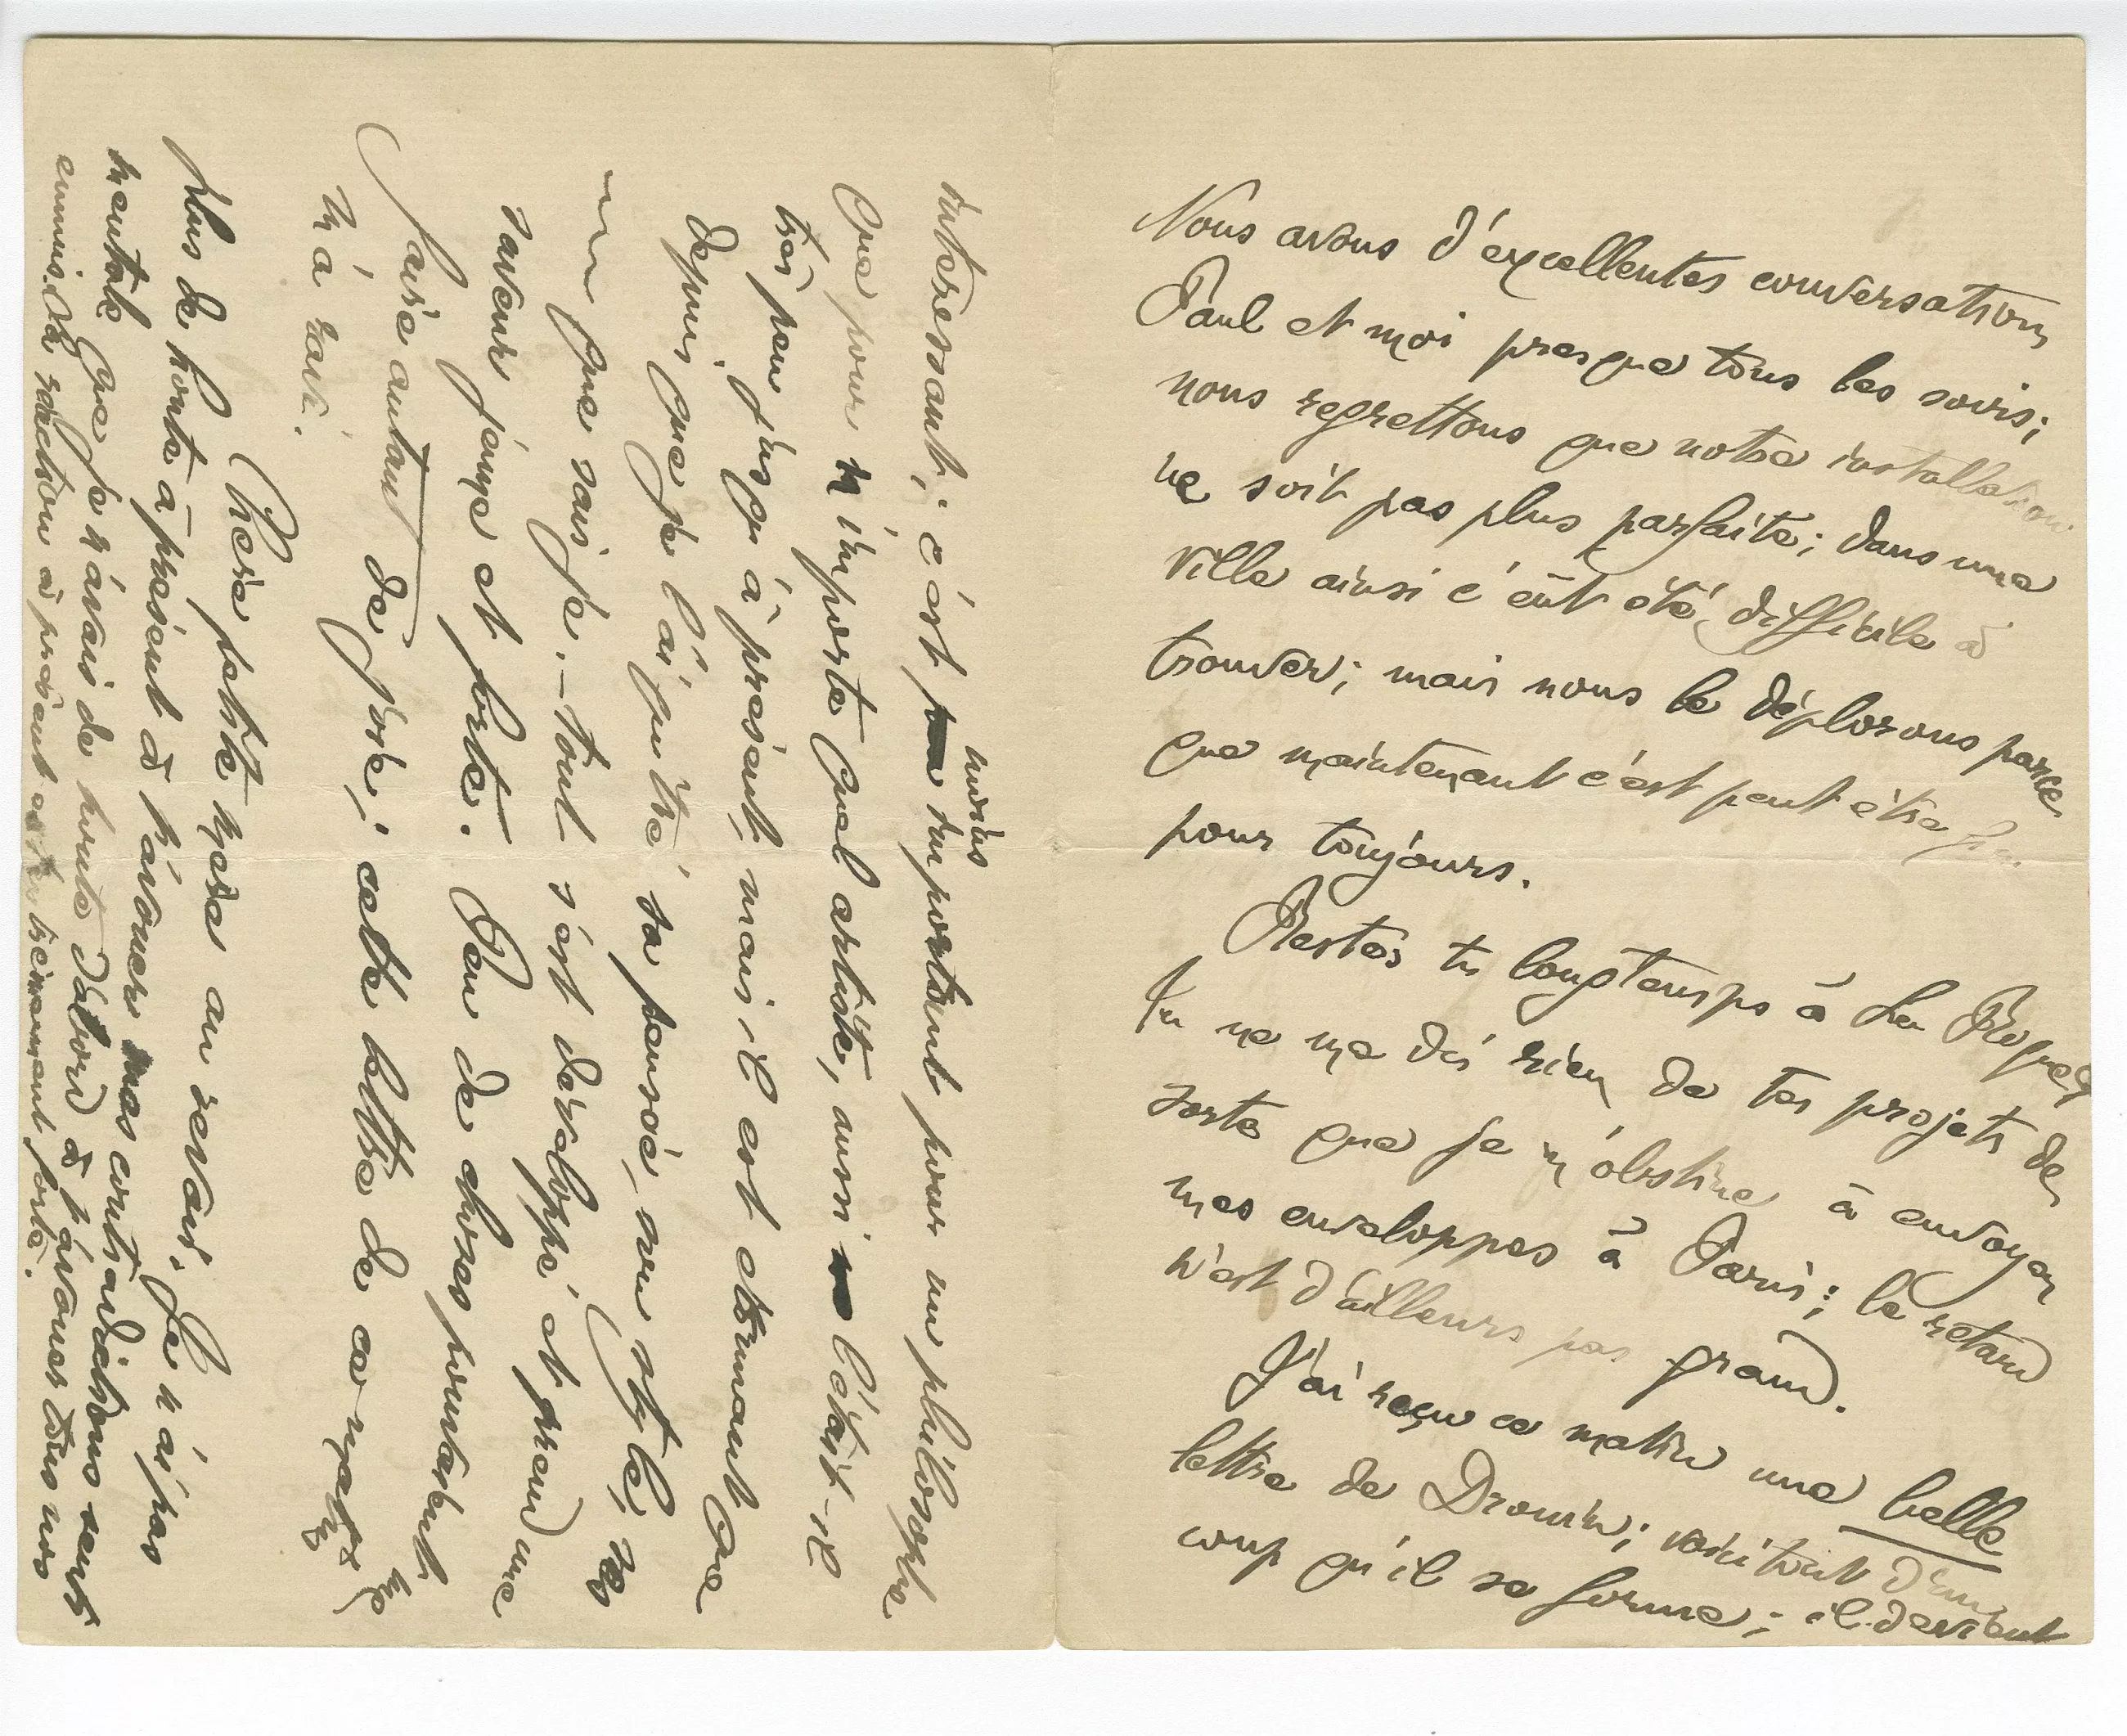 Nous avons d'excellentes conversations
Paul et moi presque tous les soirs;
nous regrettons que notre installation
ne soit pas plus parfaite; dans une
ville ainsi c'eût été difficile à
trouver; mais nous le déplorons parce
que maintenant c'est peut être fini
pour toujours.
Restes tu longtemps à La Roque,
tu ne me dis rien de tes projets de
sorte que je m'obstine à envoyer
mes enveloppes à Paris; le retard
n'est d'ailleurs pas grand.
J'ai reçu ce matin une belle
lettre de Drouin; voici tout d'un
coup qu'il se forme; il devient
interessant; c'est moins important pour un philosophe
que pour n'importe quel artiste, aussi l'était-il
très peu jusqu'à présent, mais il est étonnant que
depuis que je l'ai quitté sa pensée, son style, ses
que sais-je, — tout s'est développé et prend une
saveur jeune et forte. Peu de choses pourtant
faire autant de joie; cette lettre de ce matin
m'a ravi.
Chère petite mère au revoir. Je n'ai pas
plus de honte à présent à t'avouer mes contradictions senti
mentale que je n'avais de honte d'abord à t'avouer tous mes
ennuis. La réaction à présent est